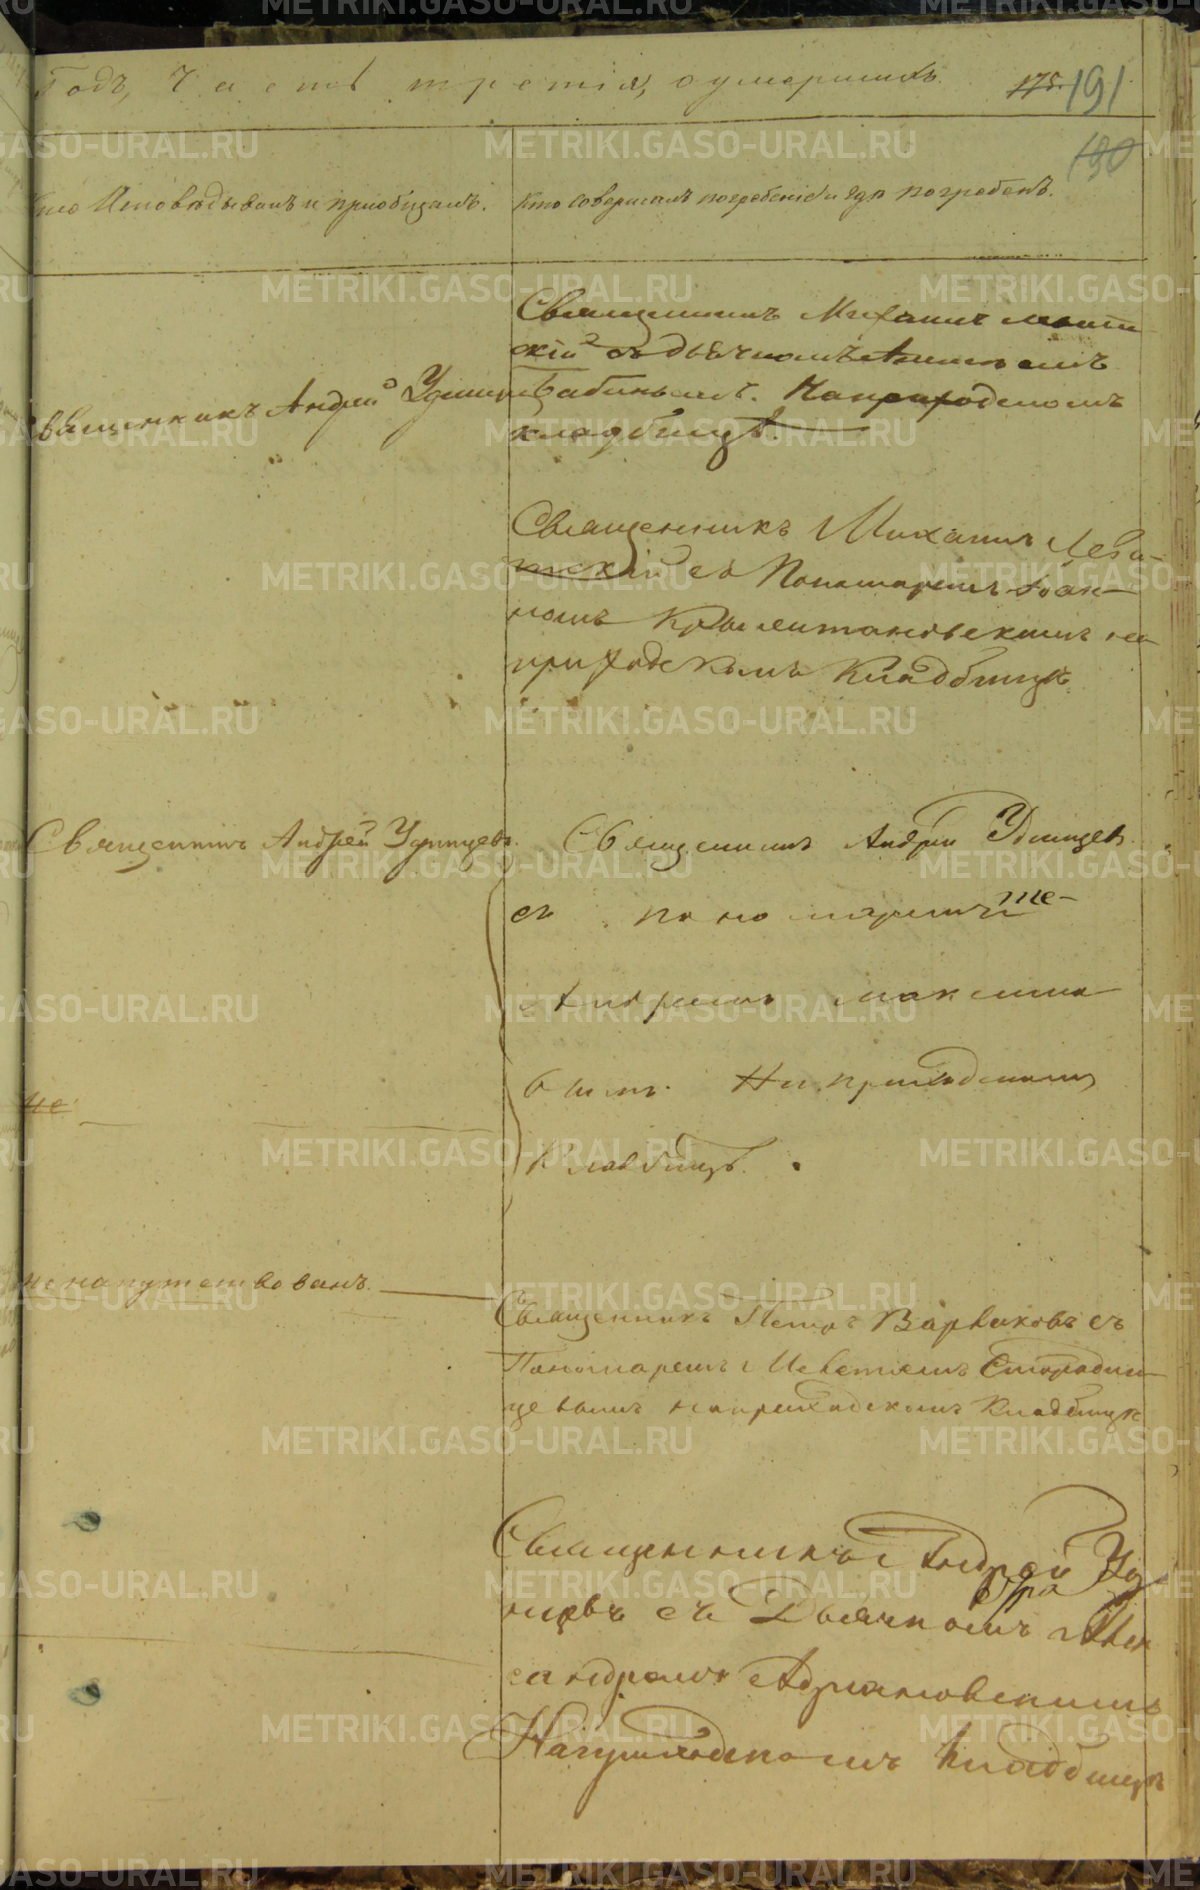 Годъ, Часть третія, о умершихъ. 175. 191
190
Кто Исповѣдывалъ и приобщалъ.
Кто совершалъ погребеніе и гдѣ погребенъ.
Священникъ Михаилъ
скій съ дьячкомъ
Священникъ Андрей
Бабинымъ. На приходскомъ
кладбищѣ.
Священникъ Михаилъ Леви-
тскій съ Пономаремъ Іоан-
номъ на
приходскомъ Кладбищѣ
Священникъ Андрей Удинцевъ.
Священникъ Андрей Удинцев
съ пономаремъ
Андреемъ Максимо
вымъ. На приходскомъ
Кладбищѣ.
не
не напутствованъ.
Священникъ Петръ Варваковъ съ
Пономаремъ
цевымъ на приходскомъ Кладбищѣ
Священникъ Андрей Уди
нцевъ съ Дьячкомъ Алек
сандромъ Адріановскимъ
На приходскомъ Кладбищѣ
METRIKI.GASO-URAL.RU